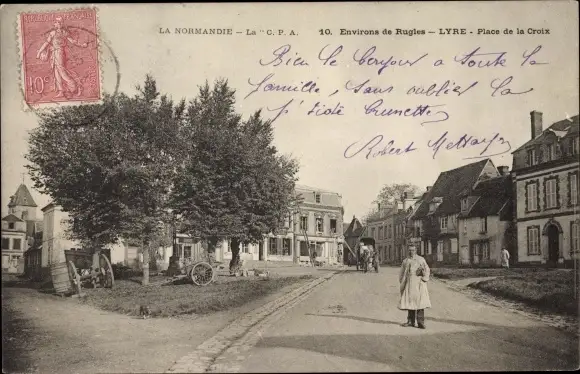 LA NORMANDIE - La "C.P.A. 10. Environs de Rugles - LYRE - Place de la Croix
Bien le bonjour a toute la
famille, sans oublier la
p'tiote Brunette
Robert
10c